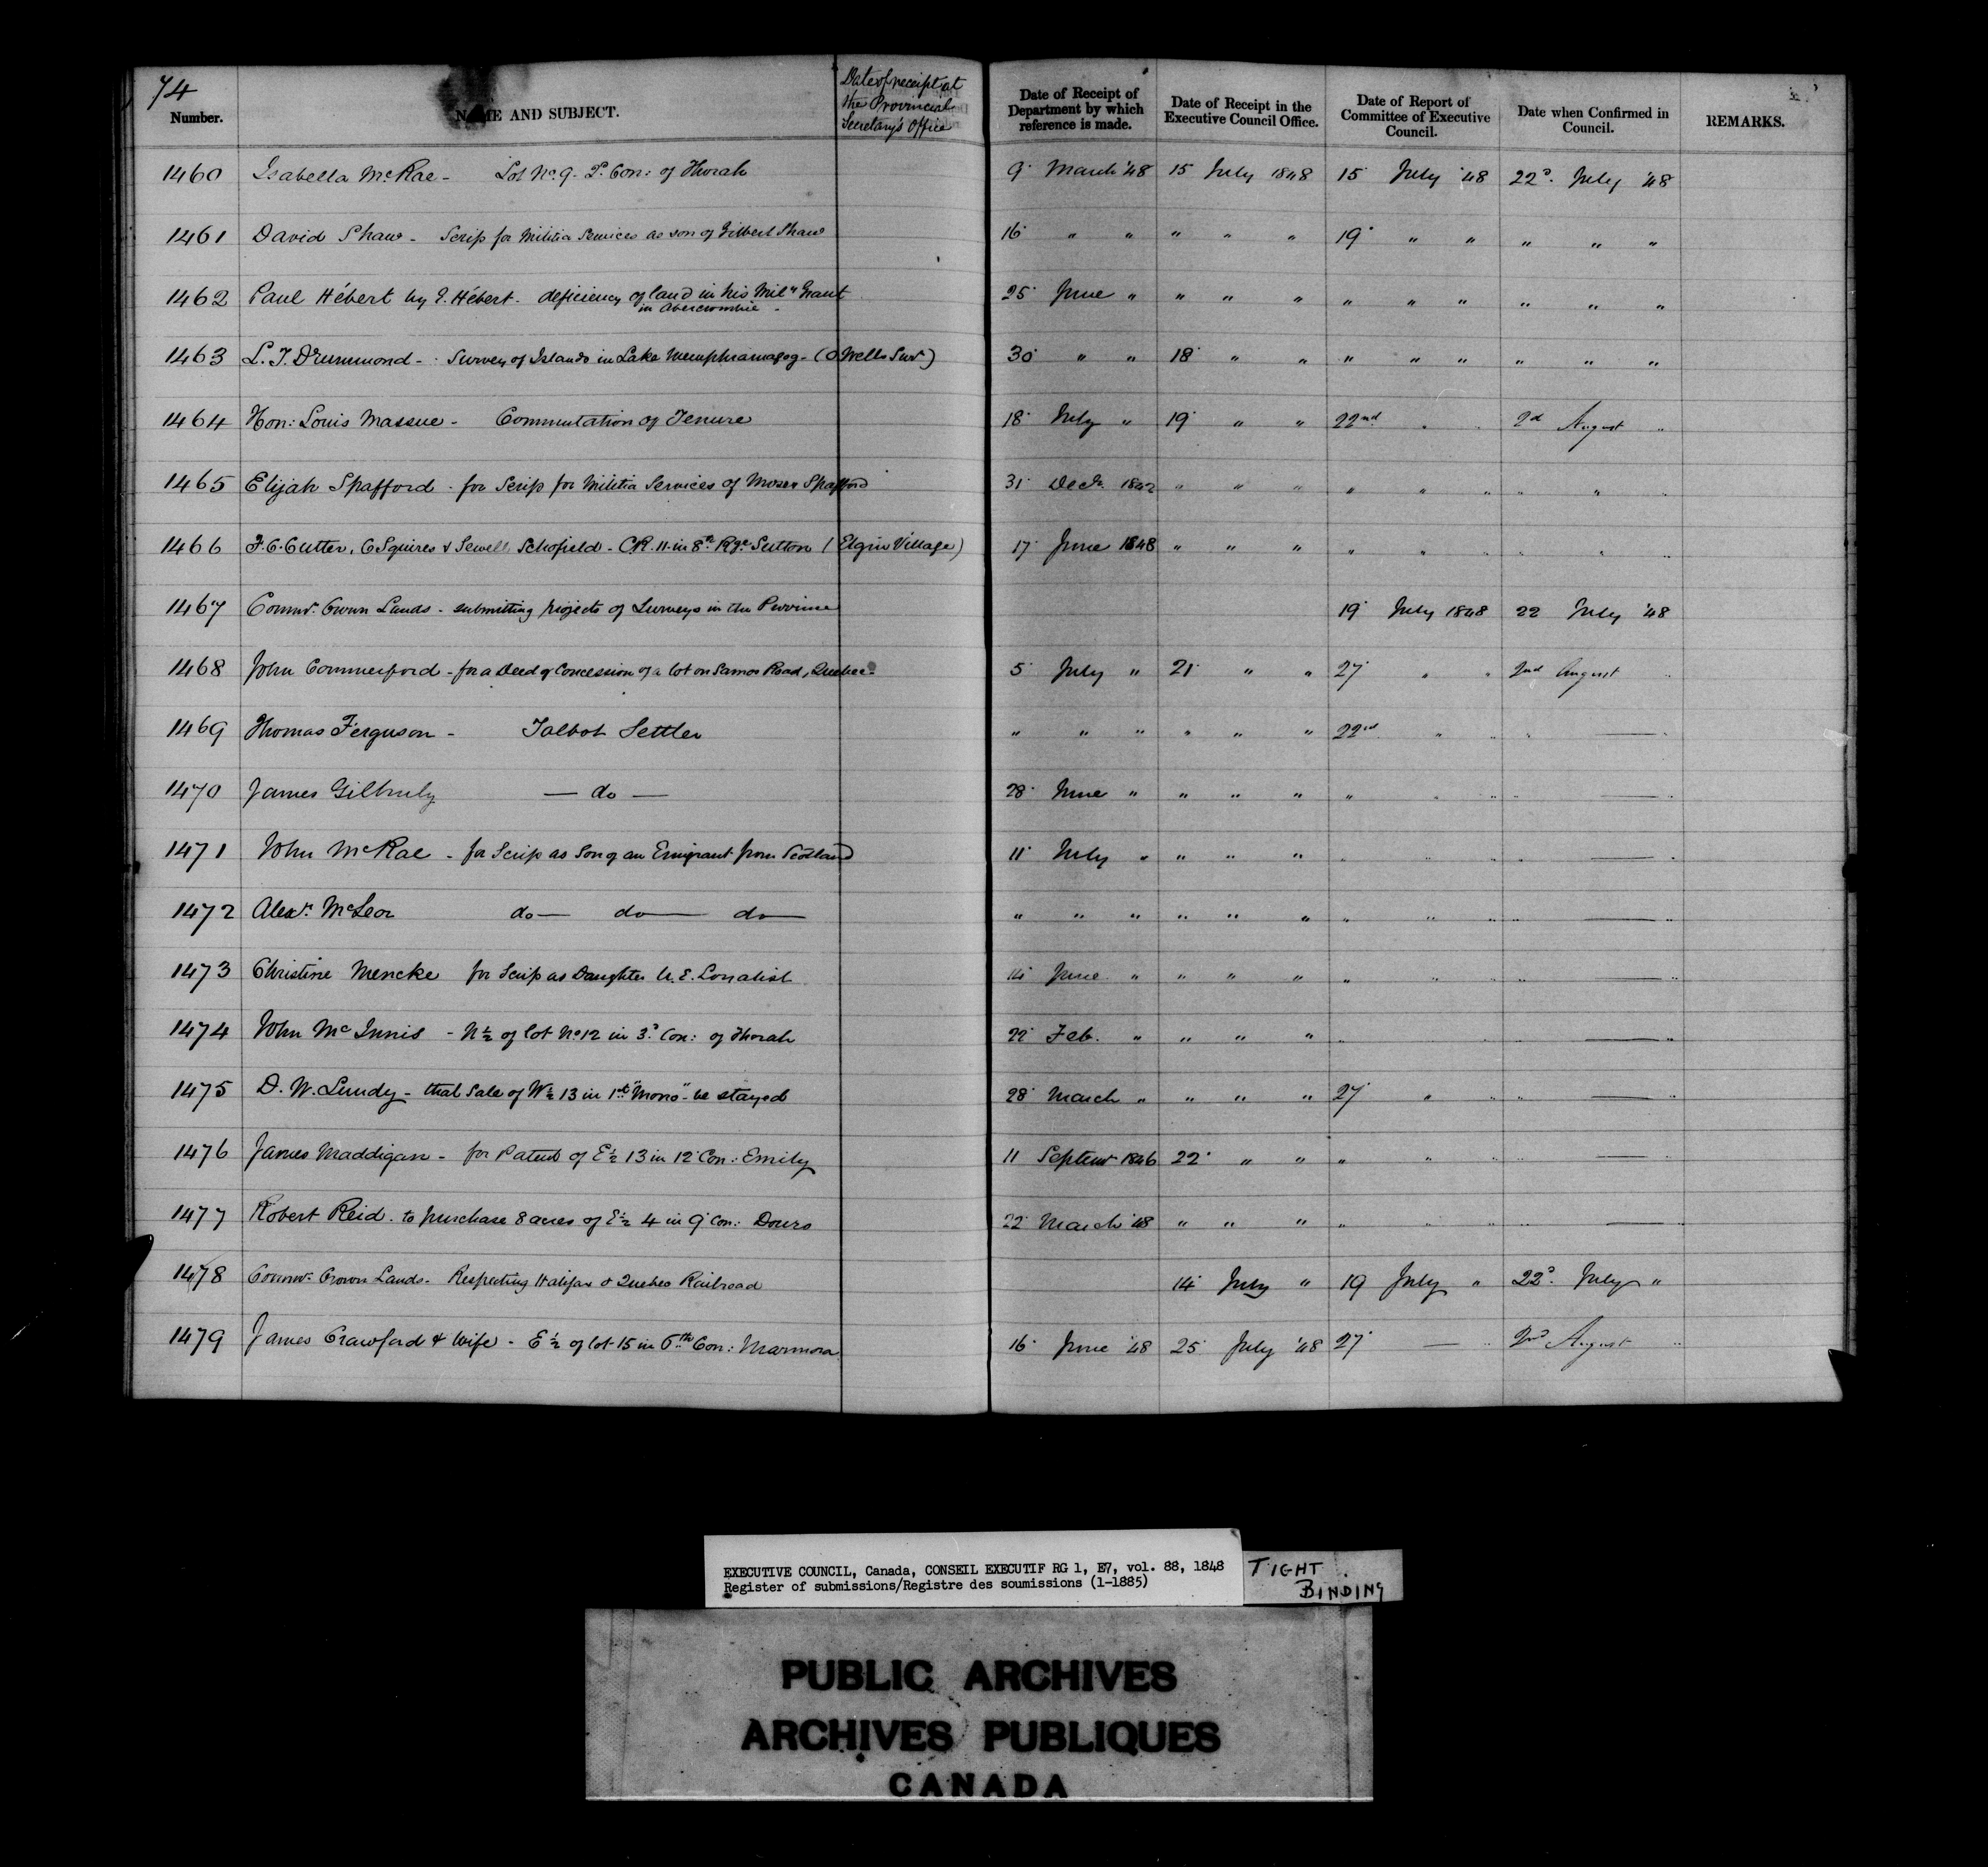 74
Number.
NAME AND SUBJECT.
Date of receipt at the Provincial Secretary's Office
Date of Receipt of Department by which reference is made.
Date of Receipt in the Executive Council Office.
Date of Report of Committee of Executive Council.
Date when Confirmed in Council.
REMARKS.
1460 Isabella McRae - Lot No. 9. Con: of Thorah 9 March '48 15 July 1848 15 July '48 22d. July '48
1461 David Shaw - Scrip for Militia Services as son of Gilbert Shaw 16 " " " " " 19 " " " " "
1462 Paul Hébert by Hébert - deficiency of land in his Mily Grant 25 June " " " " " " " " " "
in Abercrombie -
1463 L. T. Drummond - Survey of Islands in Lake Memphramagog - (O Wells Sur) 30 " " 18 " " " " " " " "
1464 Hon: Louis Massue - Commutation of Tenure 18 July " 19 " " 22nd " " 2d August "
1465 Elijah Spafford - for Scrip for Militia Services of Moses Spafford 31 Decr. 1842 " " " " " " " " "
1466 F. C. Cutter, C Squires & Sewell Schofield - CR. 11 in 8th Rge Sutton (Elgin Village) 17 June 1848 " " " " " " " " "
1467 Commr. Crown Lands - submitting projects of Surveys in the Province 19 July 1848 22 July '48
1468 John Commerford - for a Deed of Concession of a lot on Samos Road, Quebec - 5 July " 21 " " 27 " " 2nd August "
1469 Thomas Ferguson - Talbot Settler " " " " " " 22nd " " " — "
1470 James Gilhuly — do — 28 June " " " " " " " " — "
1471 John McRae - for Scrip as Son of an Emigrant from Scotland 11 July " " " " " " " " — "
1472 Alexr. McLeod do — do — do — " " " " " " " " " " — "
1473 Christine Mencke for Scrip as Daughter U. E. Loyalist 14 June " " " " " " " " — "
1474 John McInnis - N ½ of lot No 12 in 3d Con: of Thorah 22 Feb. " " " " " " " — "
1475 D. W. Lundy - that Sale of W ½ 13 in 1st "Mono" - be stayed 28 March " " " " 27 " " " — "
1476 James Maddigan - for Patent of E ½ 13 in 12 Con: Emily 11 Septemr 1846 22 " " " " " " — "
1477 Robert Reid. to purchase 8 acres of E ½ 4 in 9 Con: Douro 22 March '48 " " " " " " " — "
1478 Commr. Crown Lands - Respecting Halifax & Quebec Railroad 14 July " 19 July " 22d. July "
1479 James Crawford & Wife - E ½ of lot 15 in 6th Con: Marmora 16 June '48 25 July '48 27 — " 2nd August "
EXECUTIVE COUNCIL, Canada, CONSEIL EXECUTIF RG 1, E7, vol. 88, 1848
Register of submissions/Registre des soumissions (1-1885)
TIGHT
BINDING
PUBLIC ARCHIVES
ARCHIVES PUBLIQUES
CANADA